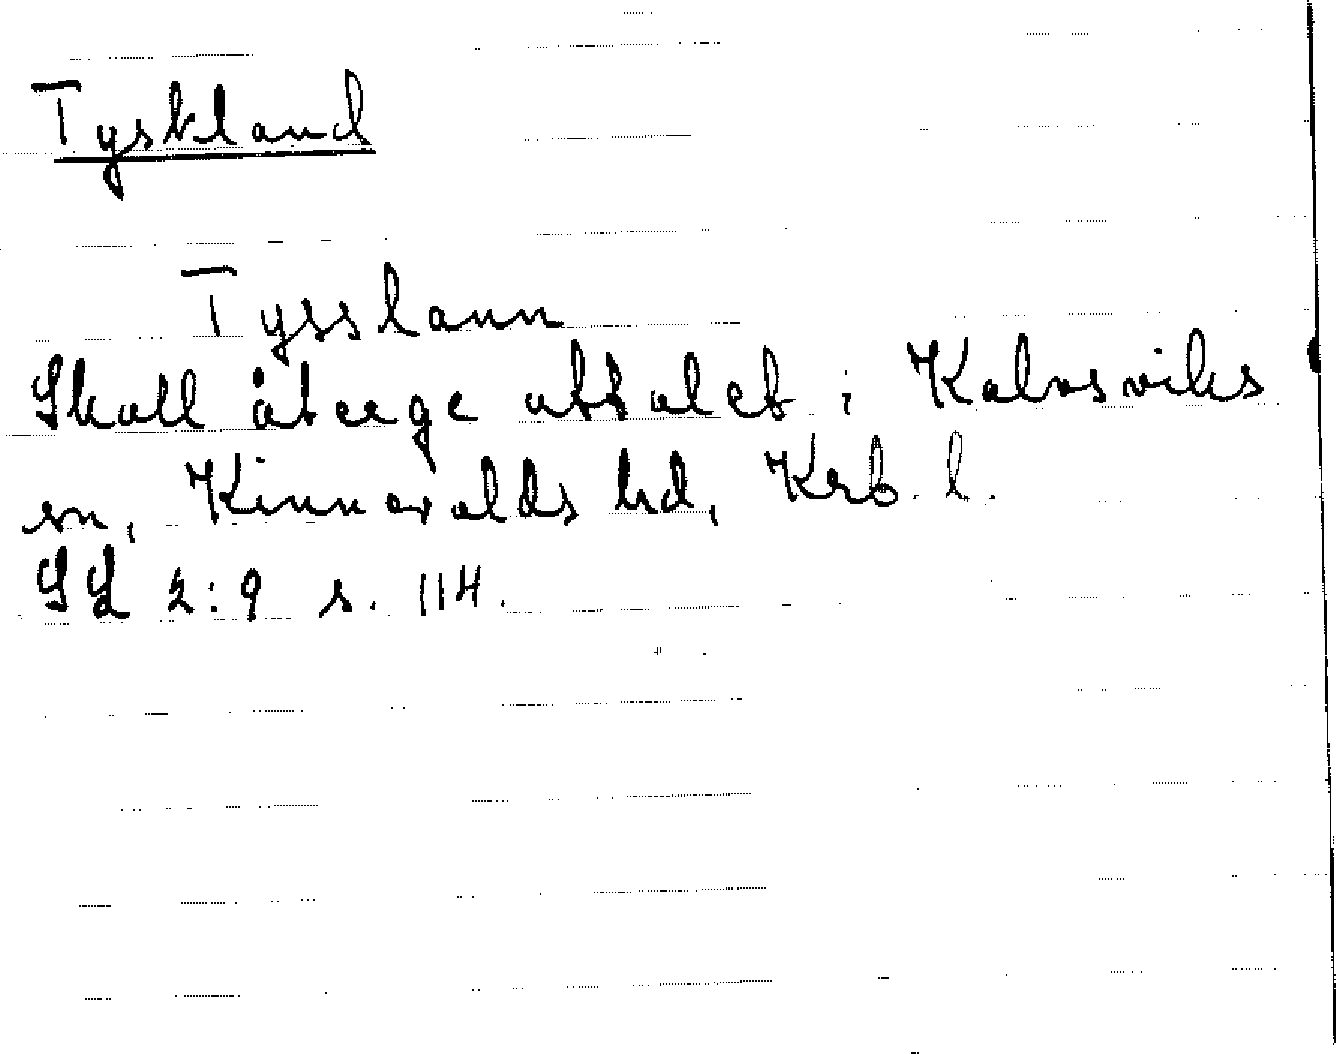 Tyskland
Tysslann
Skall återge uttalet i Kalvsviks
sn, Kinnevalds hd, Krb. l.
SL 2:9 s. 114.